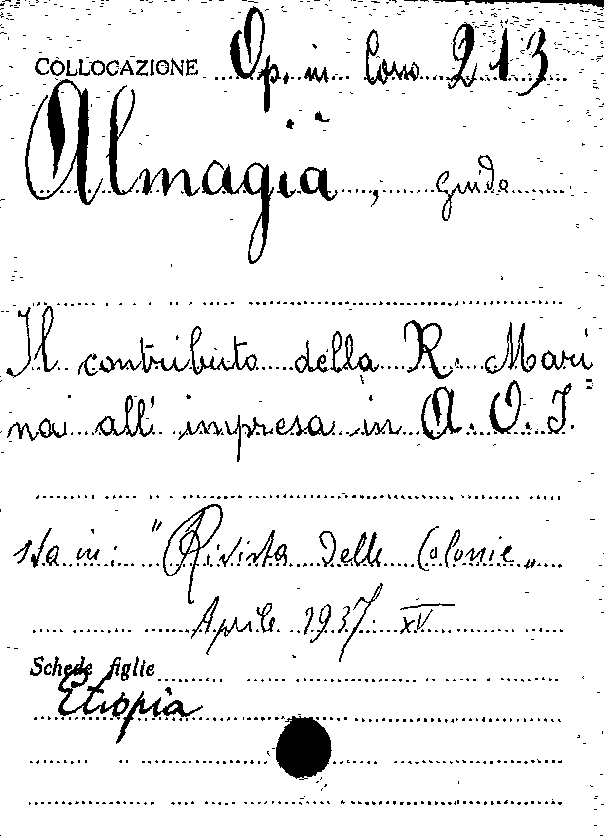 COLLOCAZIONE Op. in Cons 213
Almagià, Guido
Il contributo della R. Mari=
na all' impresa in A. O. I.
sta in: "Rivista delle Colonie„
Aprile 1937. XV
Schede figlie
Etiopia